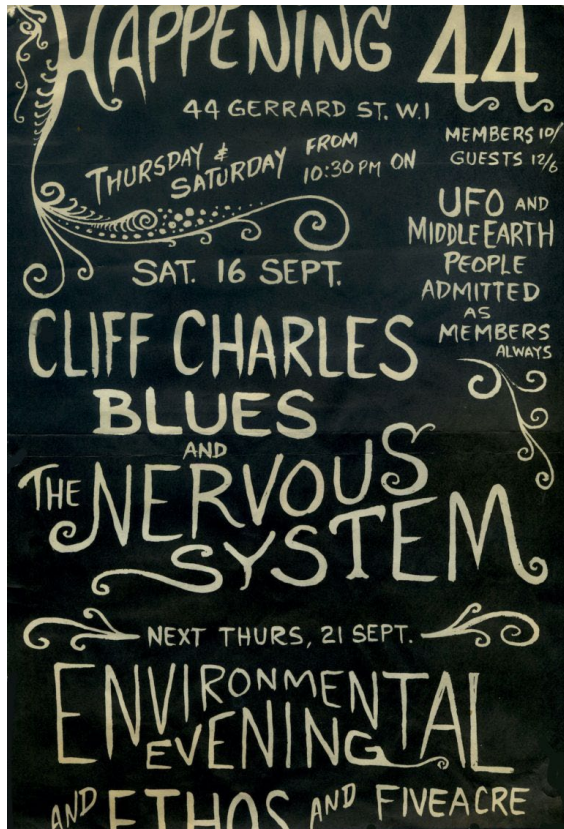 HAPPENING 44
44 GERRARD ST. W.1
MEMBERS 10/
GUESTS 12/6
THURSDAY &
SATURDAY
FROM
10:30 PM ON
UFO AND
MIDDLE EARTH
PEOPLE
ADMITTED
AS
MEMBERS
ALWAYS
SAT. 16 SEPT.
CLIFF CHARLES
BLUES
AND
THE NERVOUS
SYSTEM
NEXT THURS, 21 SEPT.
ENVIRONMENTAL
EVENING
AND ETHOS AND FIVEACRE